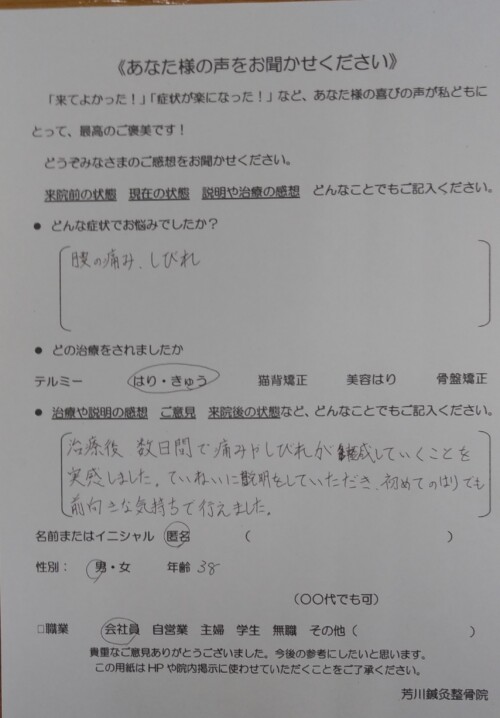 《あなた様の声をお聞かせください》
「来てよかった！」「症状が楽になった！」など、あなた様の喜びの声が私どもに
とって、最高のご褒美です！
どうぞみなさまのご感想をお聞かせください。
来院前の状態 現在の状態 説明や治療の感想 どんなことでもご記入ください。
● どんな症状でお悩みでしたか？
の痛み、しびれ
● どの治療をされましたか
テルミー はり・きゅう 猫背矯正 美容はり 骨盤矯正
● 治療や説明の感想 ご意見 来院後の状態など、どんなことでもご記入ください。
治療後 数日間で痛みやしびれが軽減していくことを
実感しました。ていねいに説明をしていただき、初めてのはりでも
前向きな気持ちで行えました。
名前またはイニシャル 匿名 （ ）
性別： 男・女 年齢 38
（〇〇代でも可）
□職業 会社員 自営業 主婦 学生 無職 その他（ ）
貴重なご意見ありがとうございました。今後の参考にしたいと思います。
この用紙はHPや院内掲示に使わせていただくことをご了承ください。
芳川鍼灸整骨院